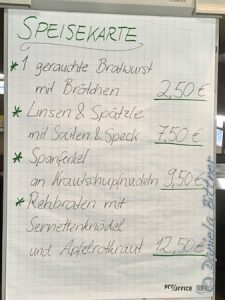 SPEISEKARTE
* 1 gerauchte Bratwurst
mit Brötchen 2,50 €
* Linsen & Spätzle
mit Saiten & Speck 7,50 €
* Spanferkel
an Krautschupfnudeln 9,50 €
* Rehbraten mit
Serviettenknödel
und Apfelrotkraut 12,50 €
PROOFFICE
© Daniela Bittner